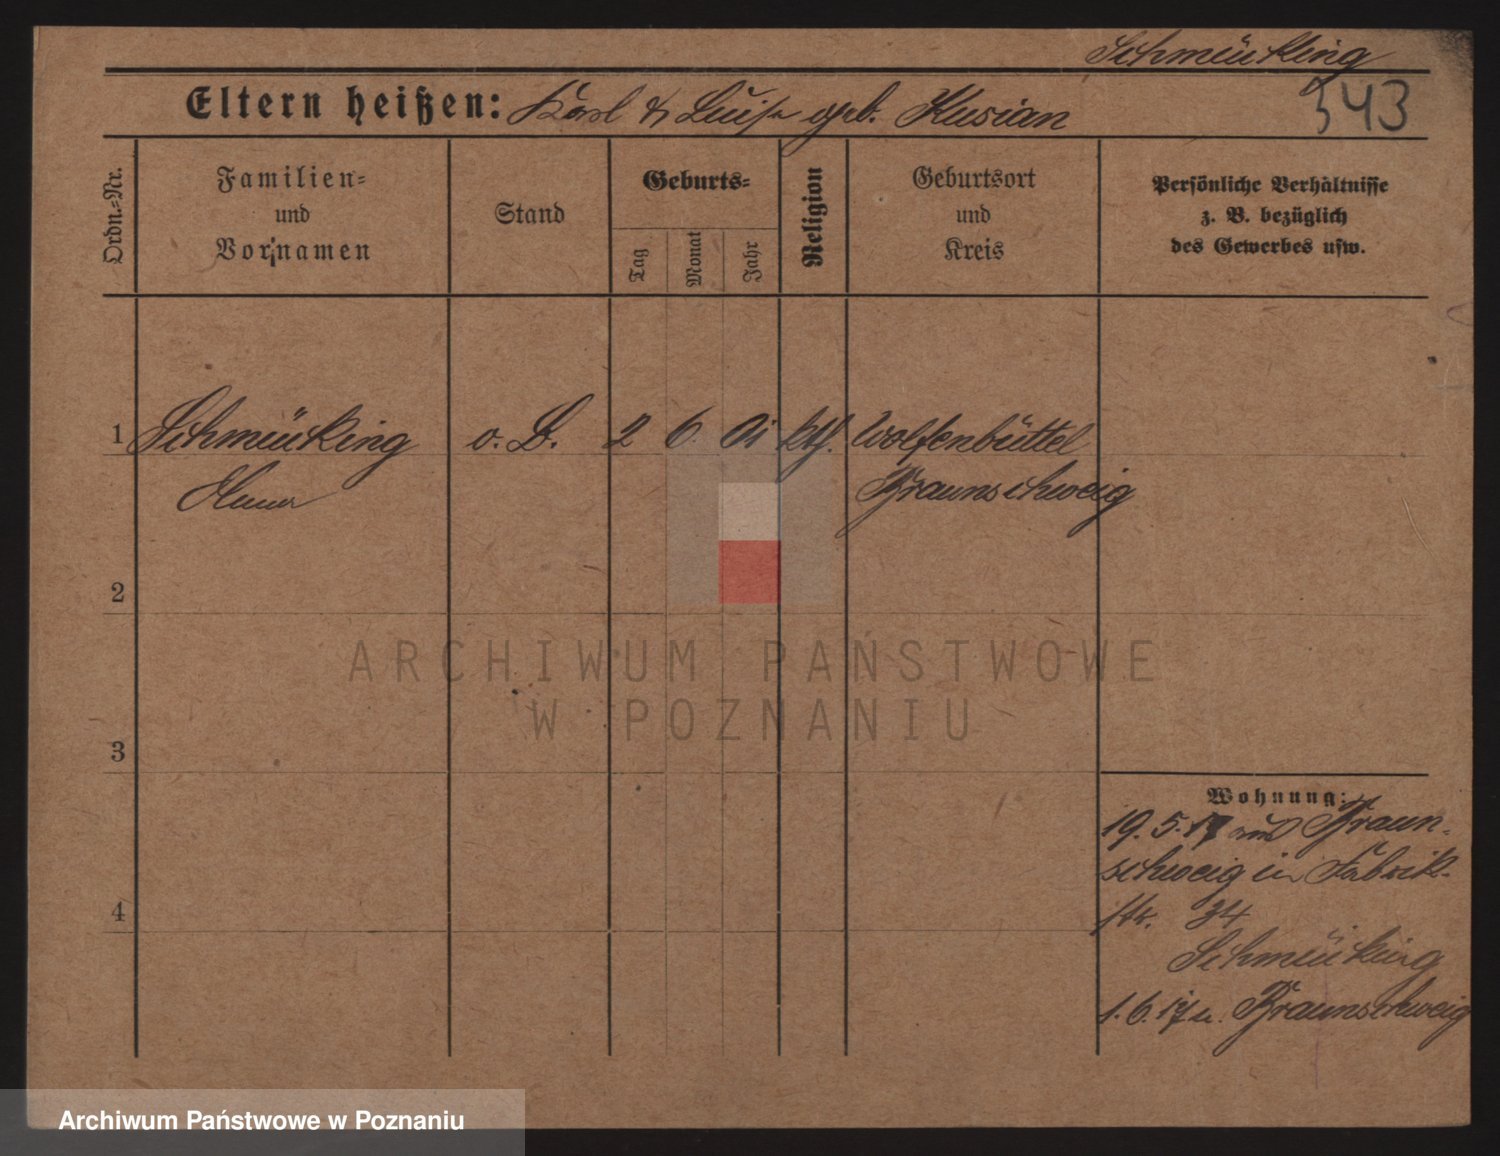 Schmücking
343
Eltern heißen: Karl & Luise geb. Kusian
Ordn.-Nr.
Familien-
und
Vornamen
Stand
Geburts-
Tag
Monat
Jahr
Religion
Geburtsort
und
Kreis
Persönliche Verhältnisse
z. B. bezüglich
des Gewerbes usw.
1 Schmücking o. B. 2 6. kth. Wolfenbüttel
Braunschweig
2
3
4
Wohnung:
19. 5. 17 aus Braun-
schweig in Fabrik-
str. 34
Schmücking
1. 6. 17 n. Braunschweig
ARCHIWUM PAŃSTWOWE
W POZNANIU
Archiwum Państwowe w Poznaniu